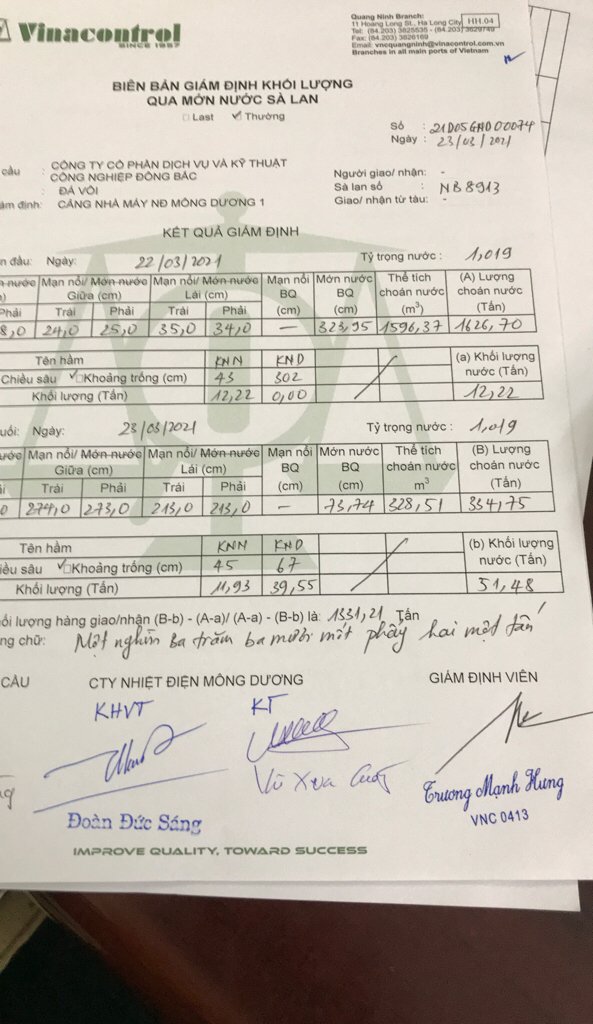 Vinacontrol
SINCE 1957
Quang Ninh Branch:
11 Hoang Long St., Ha Long City
HH.04
Tel: (84.203) 3825535 - (84.203) 3829749
Fax: (84.203) 3826169
Email: vncquangninh@vinacontrol.com.vn
Branches in all main ports of Vietnam
BIÊN BẢN GIÁM ĐỊNH KHỐI LƯỢNG
QUA MỚN NƯỚC SÀ LAN
Last Thường
Số : 21D05GHD00074
Ngày : 23/03/2021
cầu : CÔNG TY CỔ PHẦN DỊCH VỤ VÀ KỸ THUẬT
CÔNG NGHIỆP ĐÔNG BẮC
: ĐÁ VÔI
ám định: CẢNG NHÀ MÁY NĐ MÔNG DƯƠNG 1
Người giao/ nhận: -
Sà lan số : NB 8913
Giao/ nhận từ tàu: -
KẾT QUẢ GIÁM ĐỊNH
n đầu: Ngày: 22/03/2021 Tỷ trọng nước : 1,019
n nước Mạn nổi/ Mớn nước Giữa (cm) Mạn nổi/ Mớn nước Lái (cm) Mạn nổi BQ (cm) Mớn nước BQ (cm) Thể tích choán nước (m³) (A) Lượng choán nước (Tấn)
Phải Trái Phải Trái Phải
8,0 24,0 25,0 35,0 34,0 — 323,95 1596,37 1626,70
Tên hầm KNN KND (a) Khối lượng nước (Tấn)
Chiều sâu Khoảng trống (cm) 43 302
Khối lượng (Tấn) 12,22 0,00 12,22
uối: Ngày: 23/03/2021 Tỷ trọng nước : 1,019
nước Mạn nổi/ Mớn nước Giữa (cm) Mạn nổi/ Mớn nước Lái (cm) Mạn nổi BQ (cm) Mớn nước BQ (cm) Thể tích choán nước m³ (B) Lượng choán nước (Tấn)
Trái Phải Trái Phải
0 274,0 273,0 213,0 213,0 — 73,74 328,51 334,75
Tên hầm KNN KND (b) Khối lượng nước (Tấn)
iều sâu Khoảng trống (cm) 45 67
Khối lượng (Tấn) 11,93 39,55 51,48
ối lượng hàng giao/nhận (B-b) - (A-a)/ (A-a) - (B-b) là: 1331,21 Tấn
ng chữ: Một nghìn ba trăm ba mươi mốt phẩy hai một tấn
CẦU CTY NHIỆT ĐIỆN MÔNG DƯƠNG GIÁM ĐỊNH VIÊN
KHVT KT
Đoàn Đức Sáng
Trương Mạnh Hưng
VNC 0413
IMPROVE QUALITY, TOWARD SUCCESS